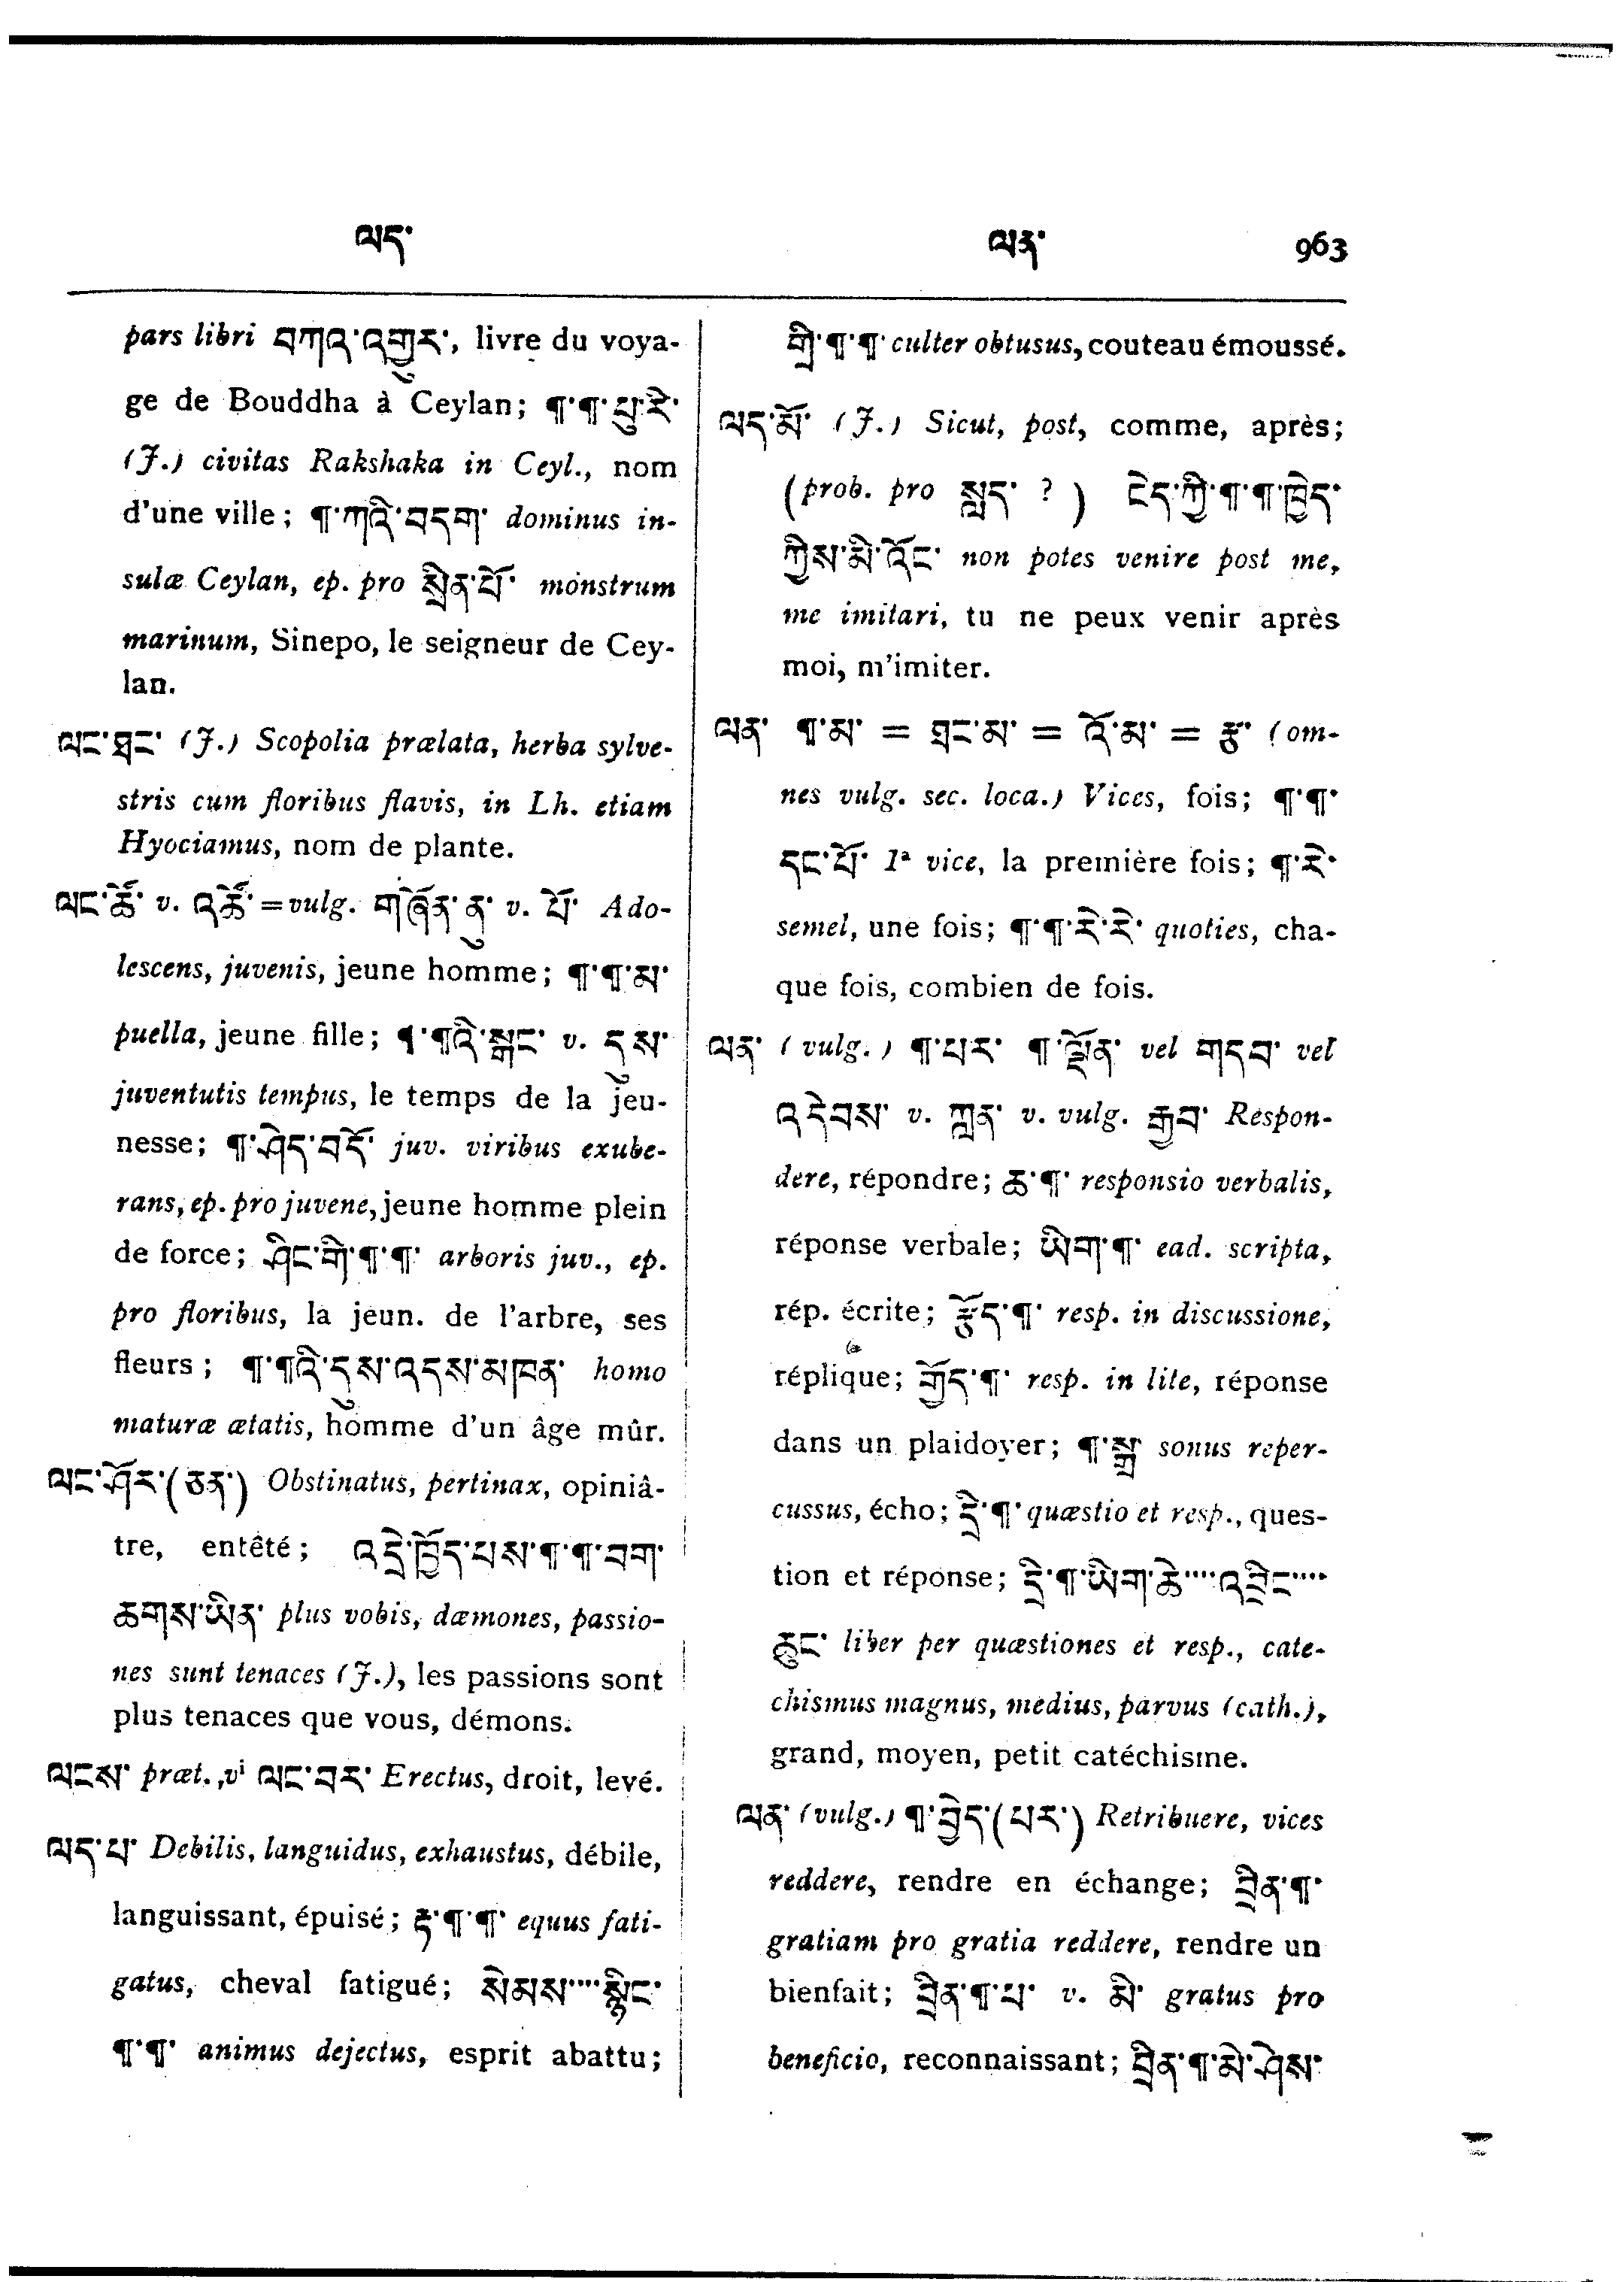 ལད་
ལན་
963
pars libri བཀའ་འགྱུར་, livre du voya-
ge de Bouddha à Ceylan; ¶་¶་པུ་རེ་
(J.) civitas Rakshaka in Ceyl., nom
d'une ville; ¶་ཀའི་བདག་ dominus in-
sulæ Ceylan, ep. pro སྲིན་པོ་ monstrum
marinum, Sinepo, le seigneur de Cey-
lan.
ལང་ཐང་ (J.) Scopolia prælata, herba sylve-
stris cum floribus flavis, in Lh. etiam
Hyociamus, nom de plante.
ལང་ཚོ་ v. འཚོ་ = vulg. གཞོན་ནུ་ v. པོ་ Ado-
lescens, juvenis, jeune homme; ¶་¶་མ་
puella, jeune fille; ¶་¶འི་སྒང་ v. དུས་
juventutis tempus, le temps de la jeu-
nesse; ¶་ཤེད་བདོ་ juv. viribus exube-
rans, ep. pro juvene, jeune homme plein
de force; ཤིང་གི་¶་¶་ arboris juv., ep.
pro floribus, la jeun. de l'arbre, ses
fleurs; ¶་¶འི་དུས་འདས་མཁན་ homo
maturæ ætatis, homme d'un âge mûr.
ལང་ཤོར་(ཅན་) Obstinatus, pertinax, opiniâ-
tre, entêté; འདྲེ་ཁྱོད་པས་¶་¶་བག་
ཆགས་ཡིན་ plus vobis, dæmones, passio-
nes sunt tenaces (J.), les passions sont
plus tenaces que vous, démons.
ལངས་ præt., vi ལང་བར་ Erectus, droit, levé.
ལད་པ་ Debilis, languidus, exhaustus, débile,
languissant, épuisé; རྟ་¶་¶་ equus fati-
gatus, cheval fatigué; སེམས་····སྙིང་
¶་¶་ animus dejectus, esprit abattu;
གྲི་¶་¶་ culter obtusus, couteau émoussé.
ལད་མོ་ (J.) Sicut, post, comme, après;
(prob. pro སླད་ ? ) ངེད་ཀྱི་¶་¶་ཁྱེད་
ཀྱིས་མི་འོང་ non potes venire post me,
me imitari, tu ne peux venir après
moi, m'imiter.
ལན་ ¶་མ་ = ཐང་མ་ = འོ་མ་ = རྩ་ (om-
nes vulg. sec. loca.) Vices, fois; ¶་¶་
དང་པོ་ 1ª vice, la première fois; ¶་རེ་
semel, une fois; ¶་¶་རེ་རེ་ quoties, cha-
que fois, combien de fois.
ལན་ (vulg.) ¶་པར་ ¶་ལྡོན་ vel གདབ་ vel
འདེབས་ v. ཀླན་ v. vulg. རྒྱབ་ Respon-
dere, répondre; ཆ་¶་ responsio verbalis,
réponse verbale; ཡིག་¶་ ead. scripta,
rép. écrite; རྩོད་¶་ resp. in discussione,
réplique; གྱོད་¶་ resp. in lite, réponse
dans un plaidoyer; ¶་སྒྲ་ sonus reper-
cussus, écho; དྲི་¶་ quæstio et resp., ques-
tion et réponse; དྲི་¶་ཡིག་ཆེ་····འབྲིང་····
ཆུང་ liber per quæstiones et resp., cate-
chismus magnus, medius, parvus (cath.),
grand, moyen, petit catéchisme.
ལན་ (vulg.) ¶་བྱེད་(པར་) Retribuere, vices
reddere, rendre en échange; དྲིན་¶་
gratiam pro gratia reddere, rendre un
bienfait; དྲིན་¶་པ་ v. མི་ gratus pro
beneficio, reconnaissant; དྲིན་¶་མེ་ཤེས་